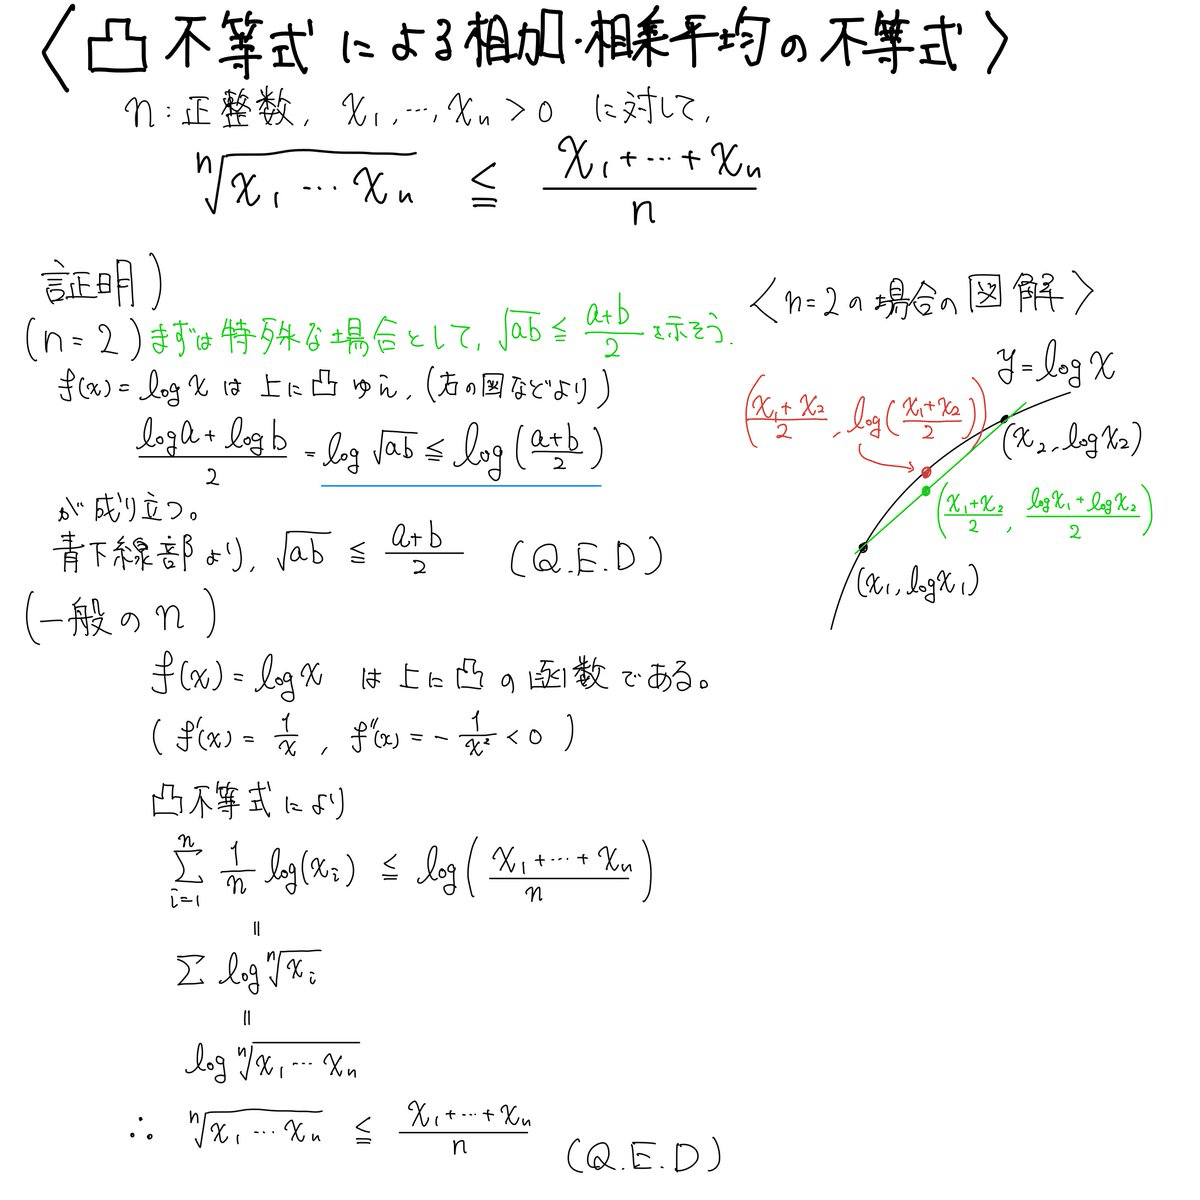 〈凸不等式による相加・相乗平均の不等式〉
n:正整数, x₁,…,xₙ>0 に対して,
ⁿ√(x₁…xₙ) ≦ (x₁+…+xₙ)/n
証明)
(n=2) まずは特殊な場合として, √ab ≦ (a+b)/2 を示そう.
f(x)=logx は 上に凸 ゆえ, (右の図などより)
(loga+logb)/2 = log√ab ≦ log((a+b)/2)
が成り立つ。
青下線部より, √ab ≦ (a+b)/2 (Q.E.D)
〈n=2の場合の図解〉
y=logx
((x₁+x₂)/2, log((x₁+x₂)/2))
(x₂, logx₂)
((x₁+x₂)/2, (logx₁+logx₂)/2)
(x₁, logx₁)
(一般のn)
f(x)=logx は上に凸の函数である。
(f'(x)=1/x, f''(x)=-1/x²<0)
凸不等式により
Σ_{i=1}^{n} 1/n log(xᵢ) ≦ log((x₁+…+xₙ)/n)
=
Σ log ⁿ√xᵢ
=
log ⁿ√(x₁…xₙ)
∴ ⁿ√(x₁…xₙ) ≦ (x₁+…+xₙ)/n
(Q.E.D)